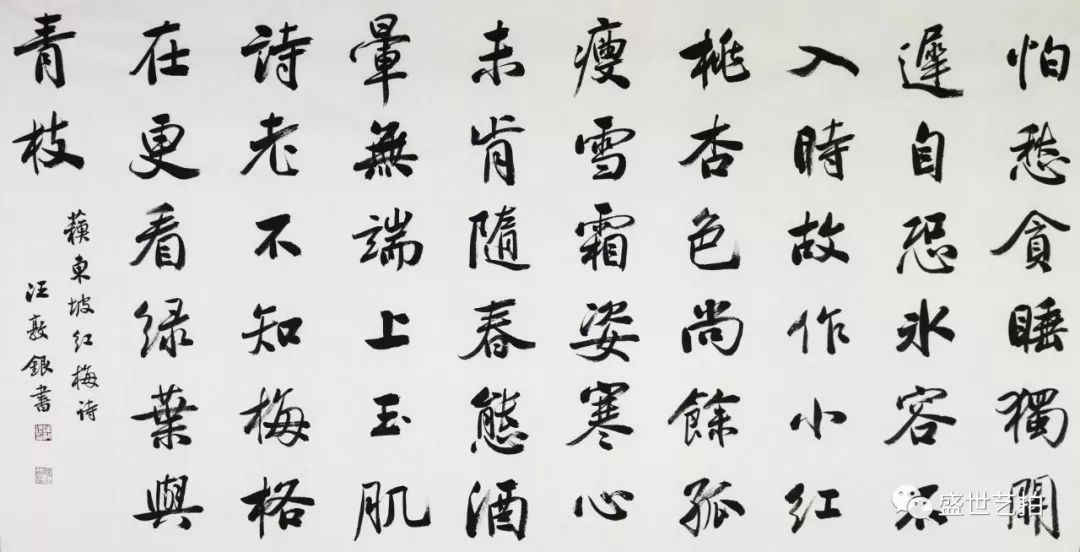 怕愁貪睡獨開
遲自恐氷容不
入時故作小紅
桃杏色尚餘孤
瘦雪霜姿寒心
未肯隨春態酒
暈無端上玉肌
詩老不知梅格
在更看绿葉與
青枝
蘇東坡红梅诗
汪敦銀書
盛世艺拍